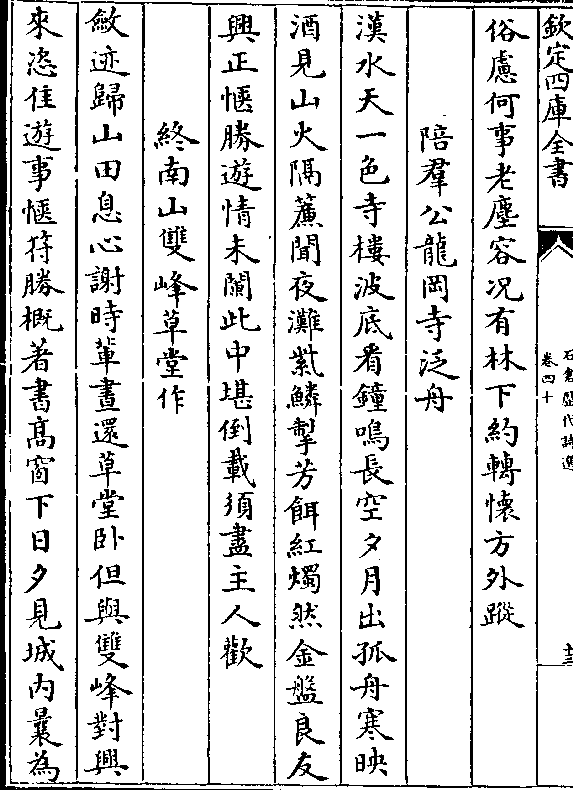 欽定四庫全書
石倉歷代詩選
卷四十
十三
俗慮何事老塵容况有林下約轉懷方外蹤
陪羣公龍岡寺泛舟
漢水天一色寺樓波底看鐘鳴長空夕月出孤舟寒映
酒見山火隔簾聞夜灘紫鱗掣芳餌紅燭然金盤良友
興正愜勝遊情未闌此中堪倒載須盡主人歡
終南山雙峰草堂作
斂迹歸山田息心謝時軰晝還草堂卧但與雙峰對興
來恣佳遊事愜符勝概著書髙窗下日夕見城内曩為